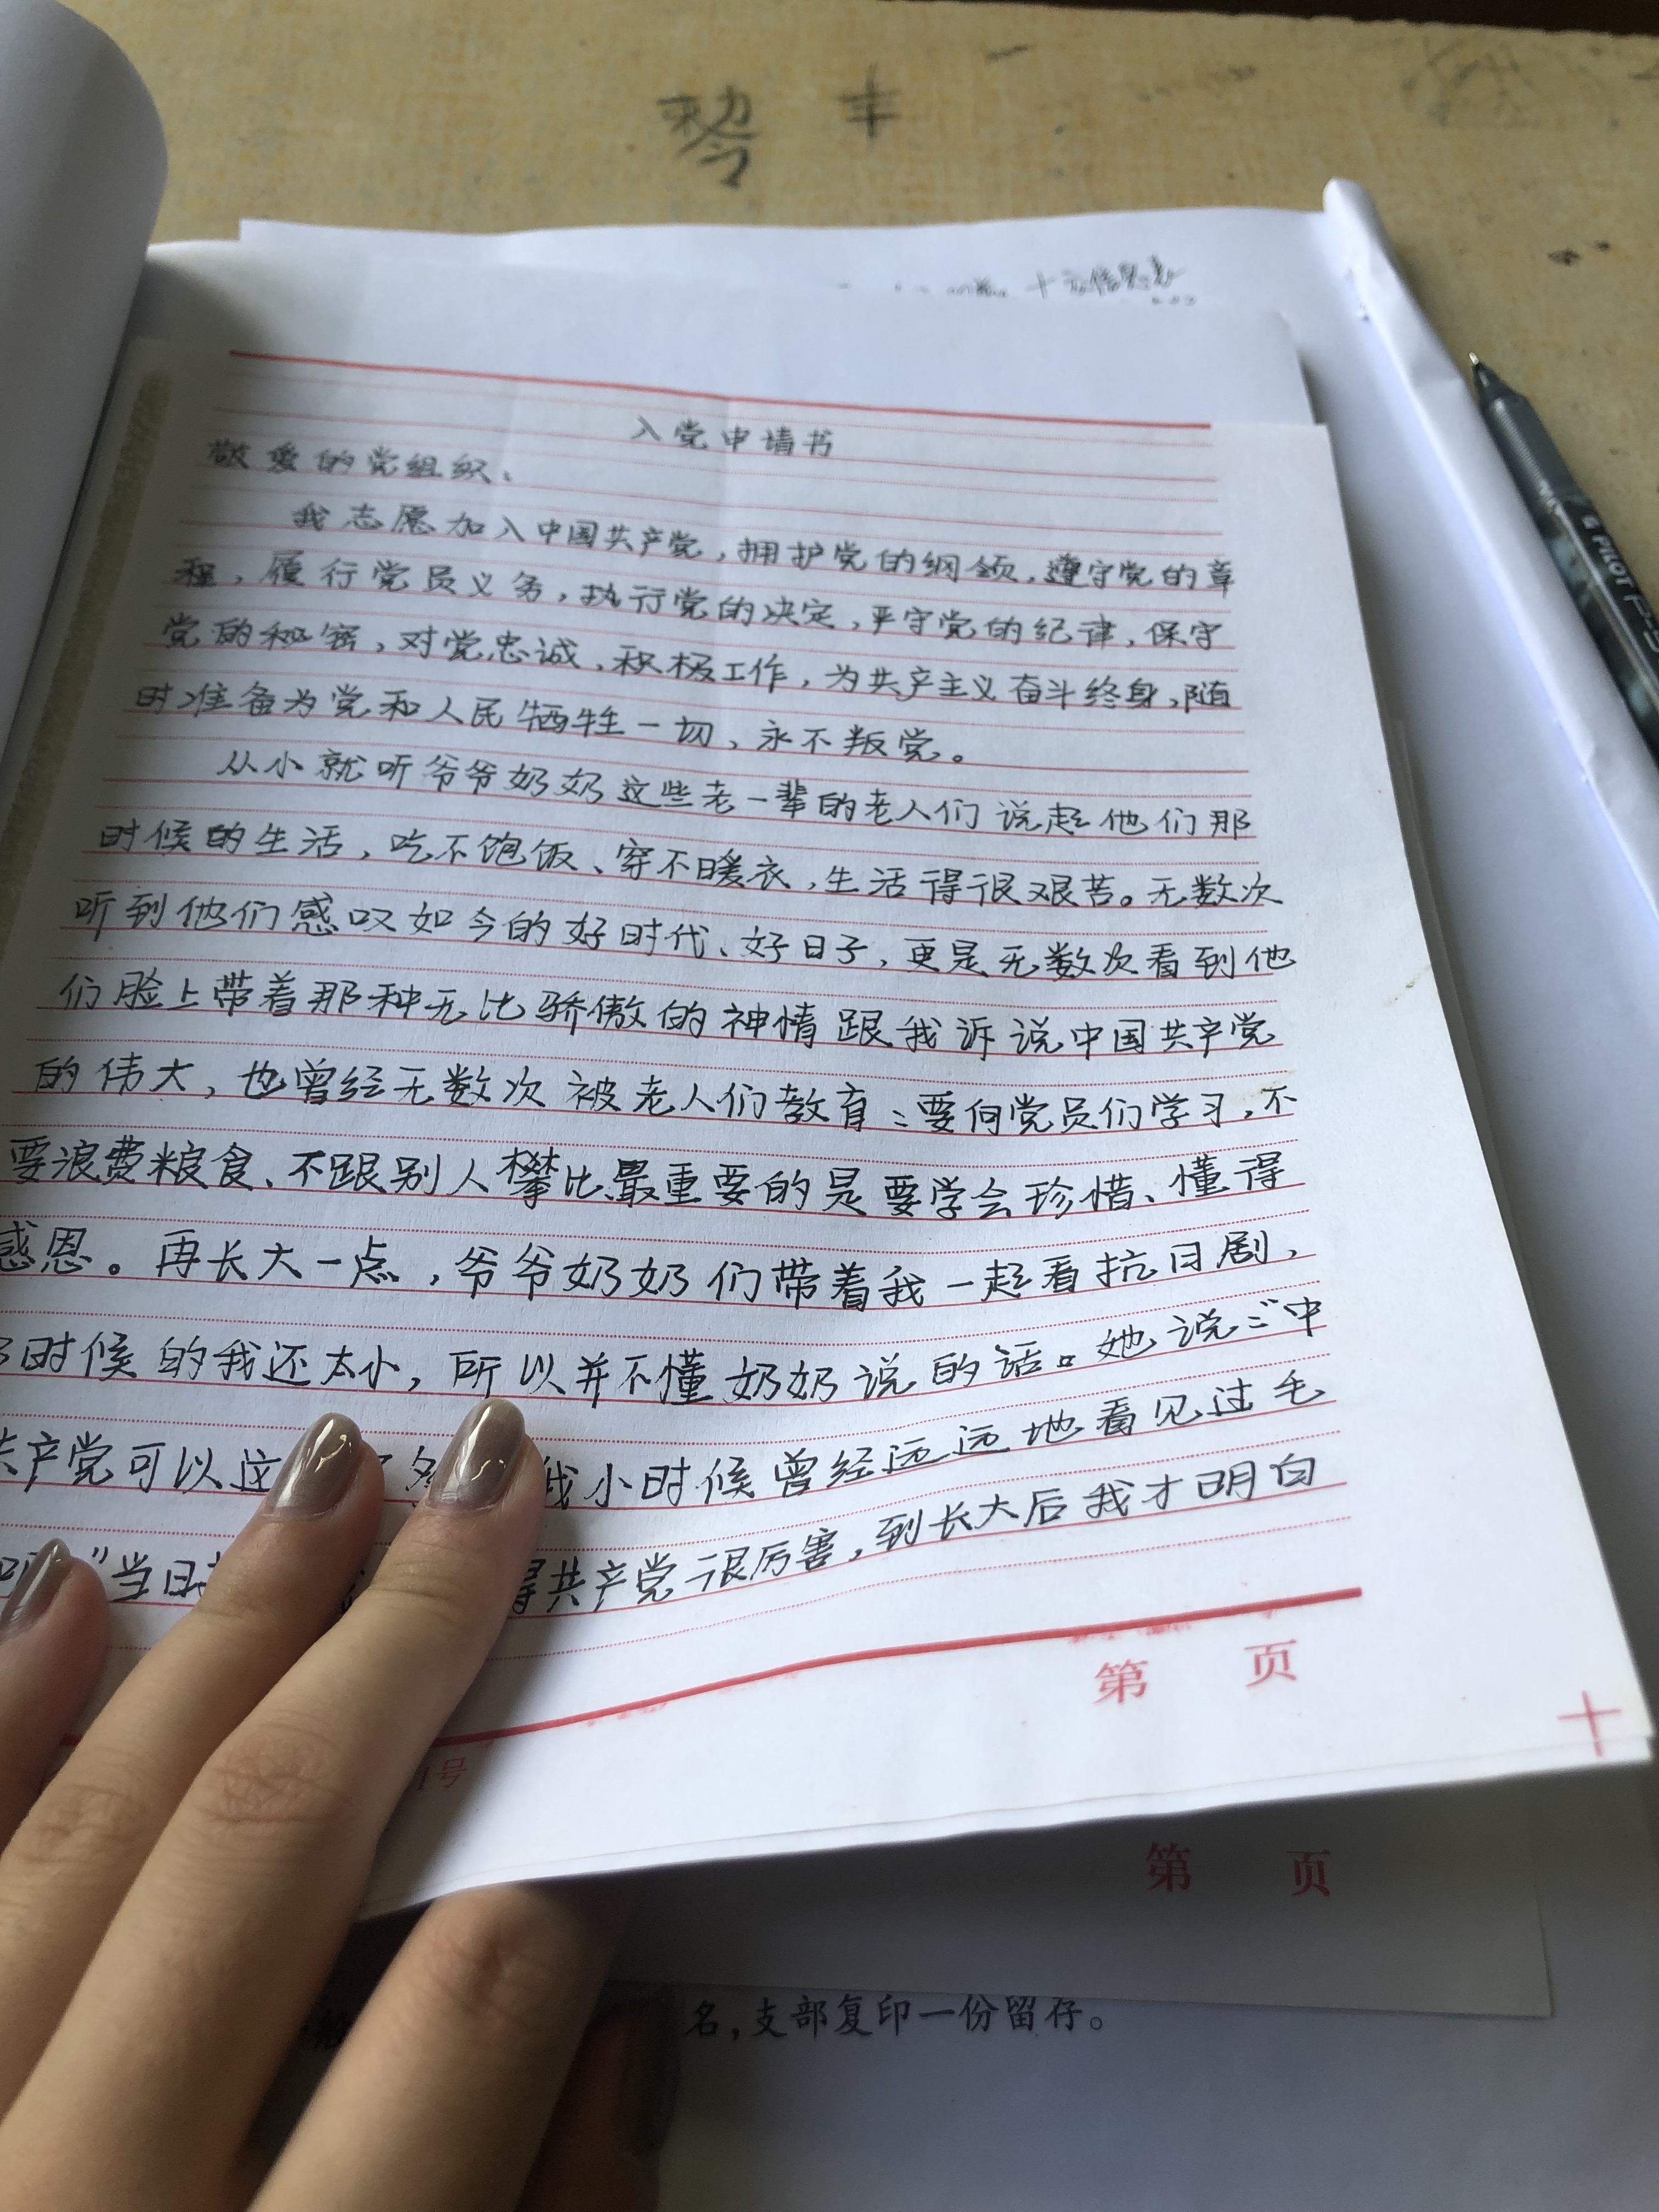 琴 丰
十交信息表
入党申请书
敬爱的党组织：
我志愿加入中国共产党，拥护党的纲领，遵守党的章
程，履行党员义务，执行党的决定，严守党的纪律，保守
党的秘密，对党忠诚，积极工作，为共产主义奋斗终身，随
时准备为党和人民牺牲一切，永不叛党。
从小就听爷爷奶奶这些老一辈的老人们说起他们那
时候的生活，吃不饱饭、穿不暖衣，生活得很艰苦。无数次
听到他们感叹如今的好时代、好日子，更是无数次看到他
们脸上带着那种无比骄傲的神情跟我诉说中国共产党
的伟大，也曾经无数次被老人们教育：要向党员们学习，不
要浪费粮食、不跟别人攀比，最重要的是要学会珍惜、懂得
感恩。再长大一点，爷爷奶奶们带着我一起看抗日剧，
时候的我还太小，所以并不懂奶奶说的话。她说：“中
共产党可以这 我小时候曾经远远地看见过毛
”当日 得共产党很厉害，到长大后我才明白
第 页
1号
第 页
名，支部复印一份留存。
PILOT P-5